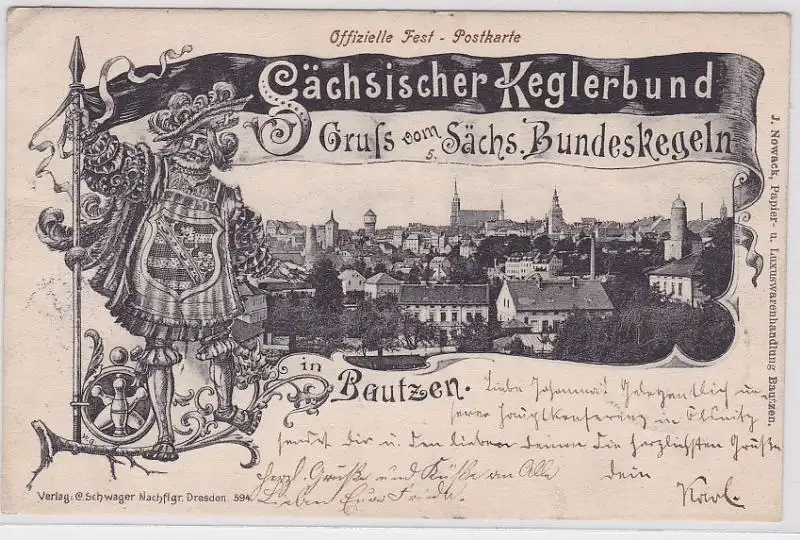 Offizielle Fest - Postkarte
Sächsischer Keglerbund
Gruſs vom 5. Sächs. Bundeskegeln
in Bautzen.
J. Nowack, Papier- u. Luxuswarenhandlung Bautzen.
Liebe Johanna! Gelegentlich un-
serer Hauptkonferenz in
sendet dir u. den lieben deinen die herzlichsten Grüße
dein
Karl.
Herzl. Grüße und Küsse an Alle
Lieben Eure Frieda.
Verlag: C. Schwager Nachflgr. Dresden 594